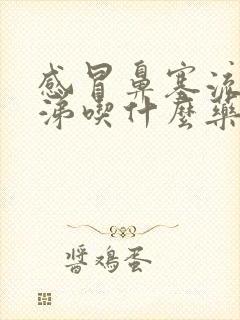 感冒鼻塞流
涕喫什麼藥
醬鴻蛋